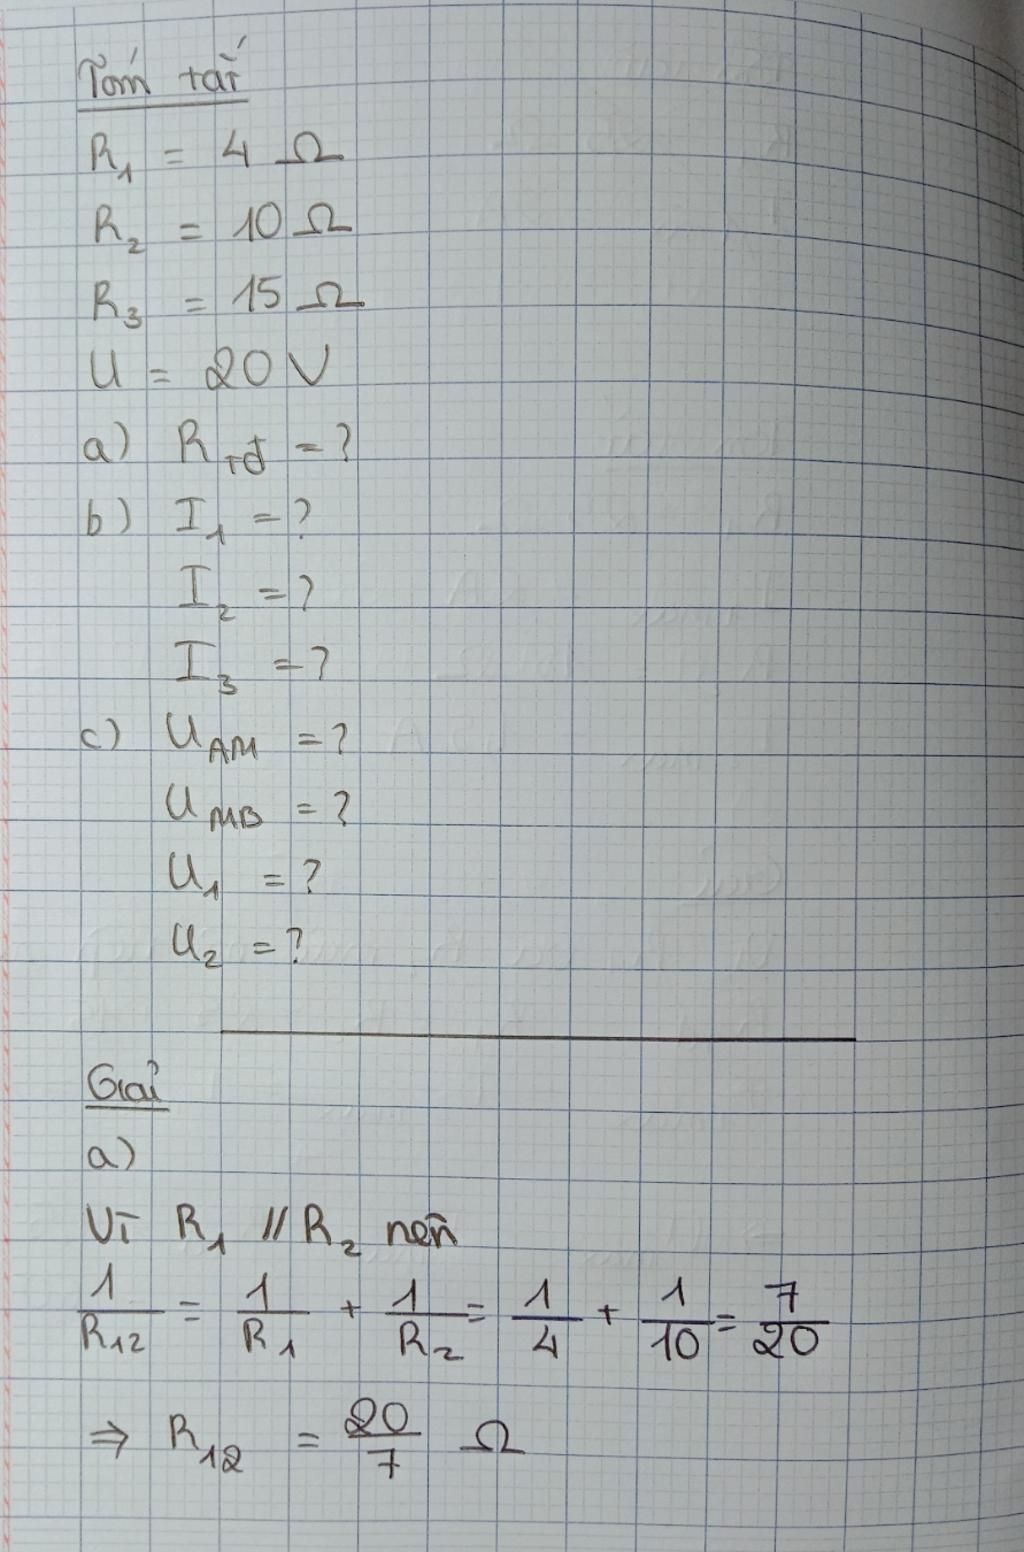 Tóm tắt
R₁ = 4 Ω
R₂ = 10 Ω
R₃ = 15 Ω
U = 20 V
a) R_tđ = ?
b) I₁ = ?
I₂ = ?
I₃ = ?
c) U_AM = ?
U_MB = ?
U₁ = ?
U₂ = ?
Giải
a)
Vì R₁ // R₂ nên
1/R₁₂ = 1/R₁ + 1/R₂ = 1/4 + 1/10 = 7/20
⇒ R₁₂ = 20/7 Ω